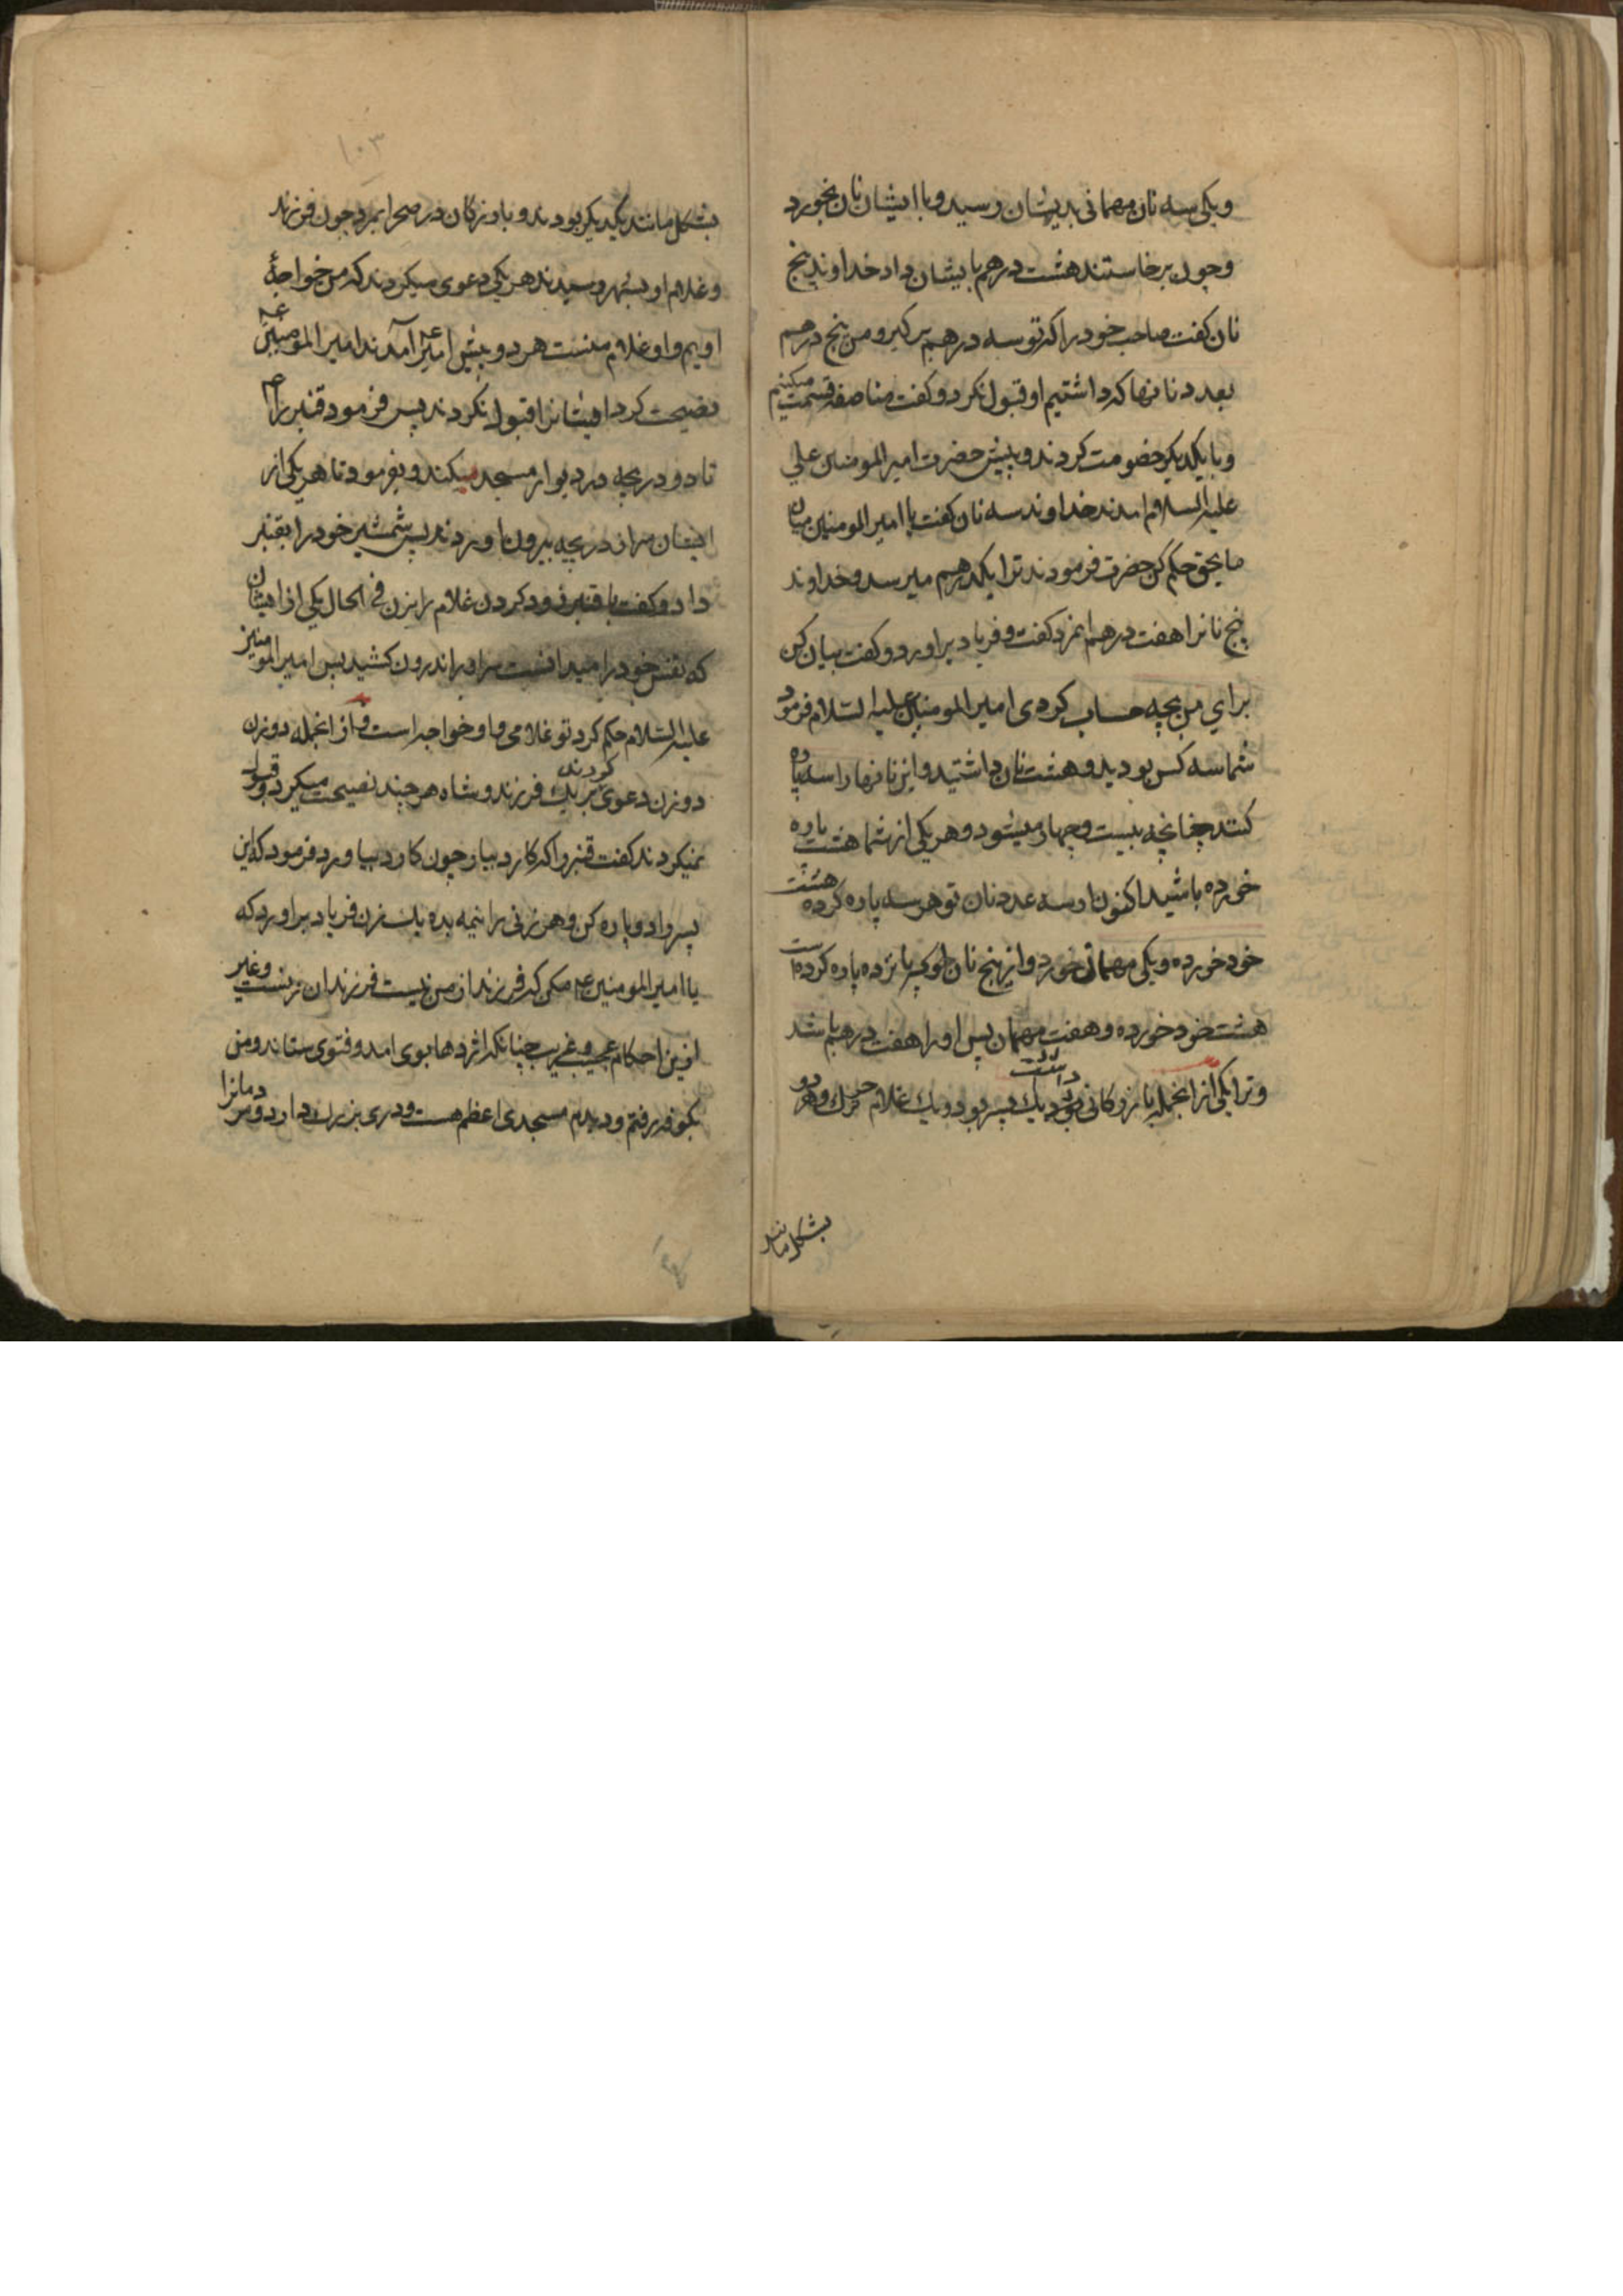 ویکی سه نان مهمانی بدیشان رسید و با ایشان نان بخورد
وچون برخاستند هشت درهم بایشان داد خداوند پنج
نان کفت صاحب خود را که تو سه درهم برکیر و من پنج درهم
بعدد نانها که داشتیم او قبول نکرد و کفت مناصفه قسمت میکنیم
وبا یکدیکر خصومت کردند و پیش حضرت امیرالمومنین علی
علیه السلام امدند خداوند سه نان کفت یا امیرالمومنین میان
ما بحق حکم کن حضرت فرمودند ترا یکدرهم میرسد و خداوند
پنج نانرا هفت درهم انمرد کفت و فریاد براورد و کفت بیان کن
برای من بچه حساب کردی امیرالمومنین علیه السلام فرمود
شما سه کس بودید و هشت نان داشتید و این نانها را سه پاره
کنند چنانچه بیست و چهار میشود و هر یکی از شما هشت پاره
خورده باشید اکنون از سه عدد نان تو هر سه پاره کرده هشت
خود خورده ویکی مهمان خورد و از پنج نان او که پانزده پاره کرده است
هشت خود خورده و هفت مهمان پس او را هفت درهم باشد
وترا یکی از انجمله بازرکانی بود یک پسر داشت و یک غلام ترک وهر دو
بشکل مانند
۱۰۳
بشکل مانند یکدیکر بودند و بازرکان در صحرا بمرد چون فرزند
وغلام او بشهر رسیدند هر یکی دعوی میکردند که من خواجۀ
اویم و او غلام منست هر دو پیش امیر آمدند امیرالمومنین
نصیحت کرد ایشانرا قبول نکردند پس فرمود قنبر را
تا دو دریچه در دیوار مسجد میکند و بفرمود تا هر یکی از
ایشان سر از دریچه بیرون اوردند پس شمشیر خود را بقنبر
داد و کفت یا قنبر زود کردن غلام را بزن فی الحال یکی از ایشان
که نفس خود را میدانست سر او را اندرون کشید پس امیرالمومنین
علیه السلام حکم کرد تو غلامی و او خواجه است و از انجمله دو زن
دو زن دعوی کردند بر یک فرزند و شاه هر چند نصیحت میکرد قبول
نمیکردند کفت قنبر را که کارد بیار چون کارد بیاورد فرمود که این
پسر را دو پاره کن و هر زنی را نیمه بده یک زن فریاد براورد که
یا امیرالمومنین مکن که فرزند از من نیست فرزند ان زنست وغیر
ازین احکام عجیب و غریب چنانکه اژدها بوی امد و فتوی ستاند و من
بکوفه رفتم و دیدم مسجدی اعظم هست و دری بزرک دارد و مردمانرا